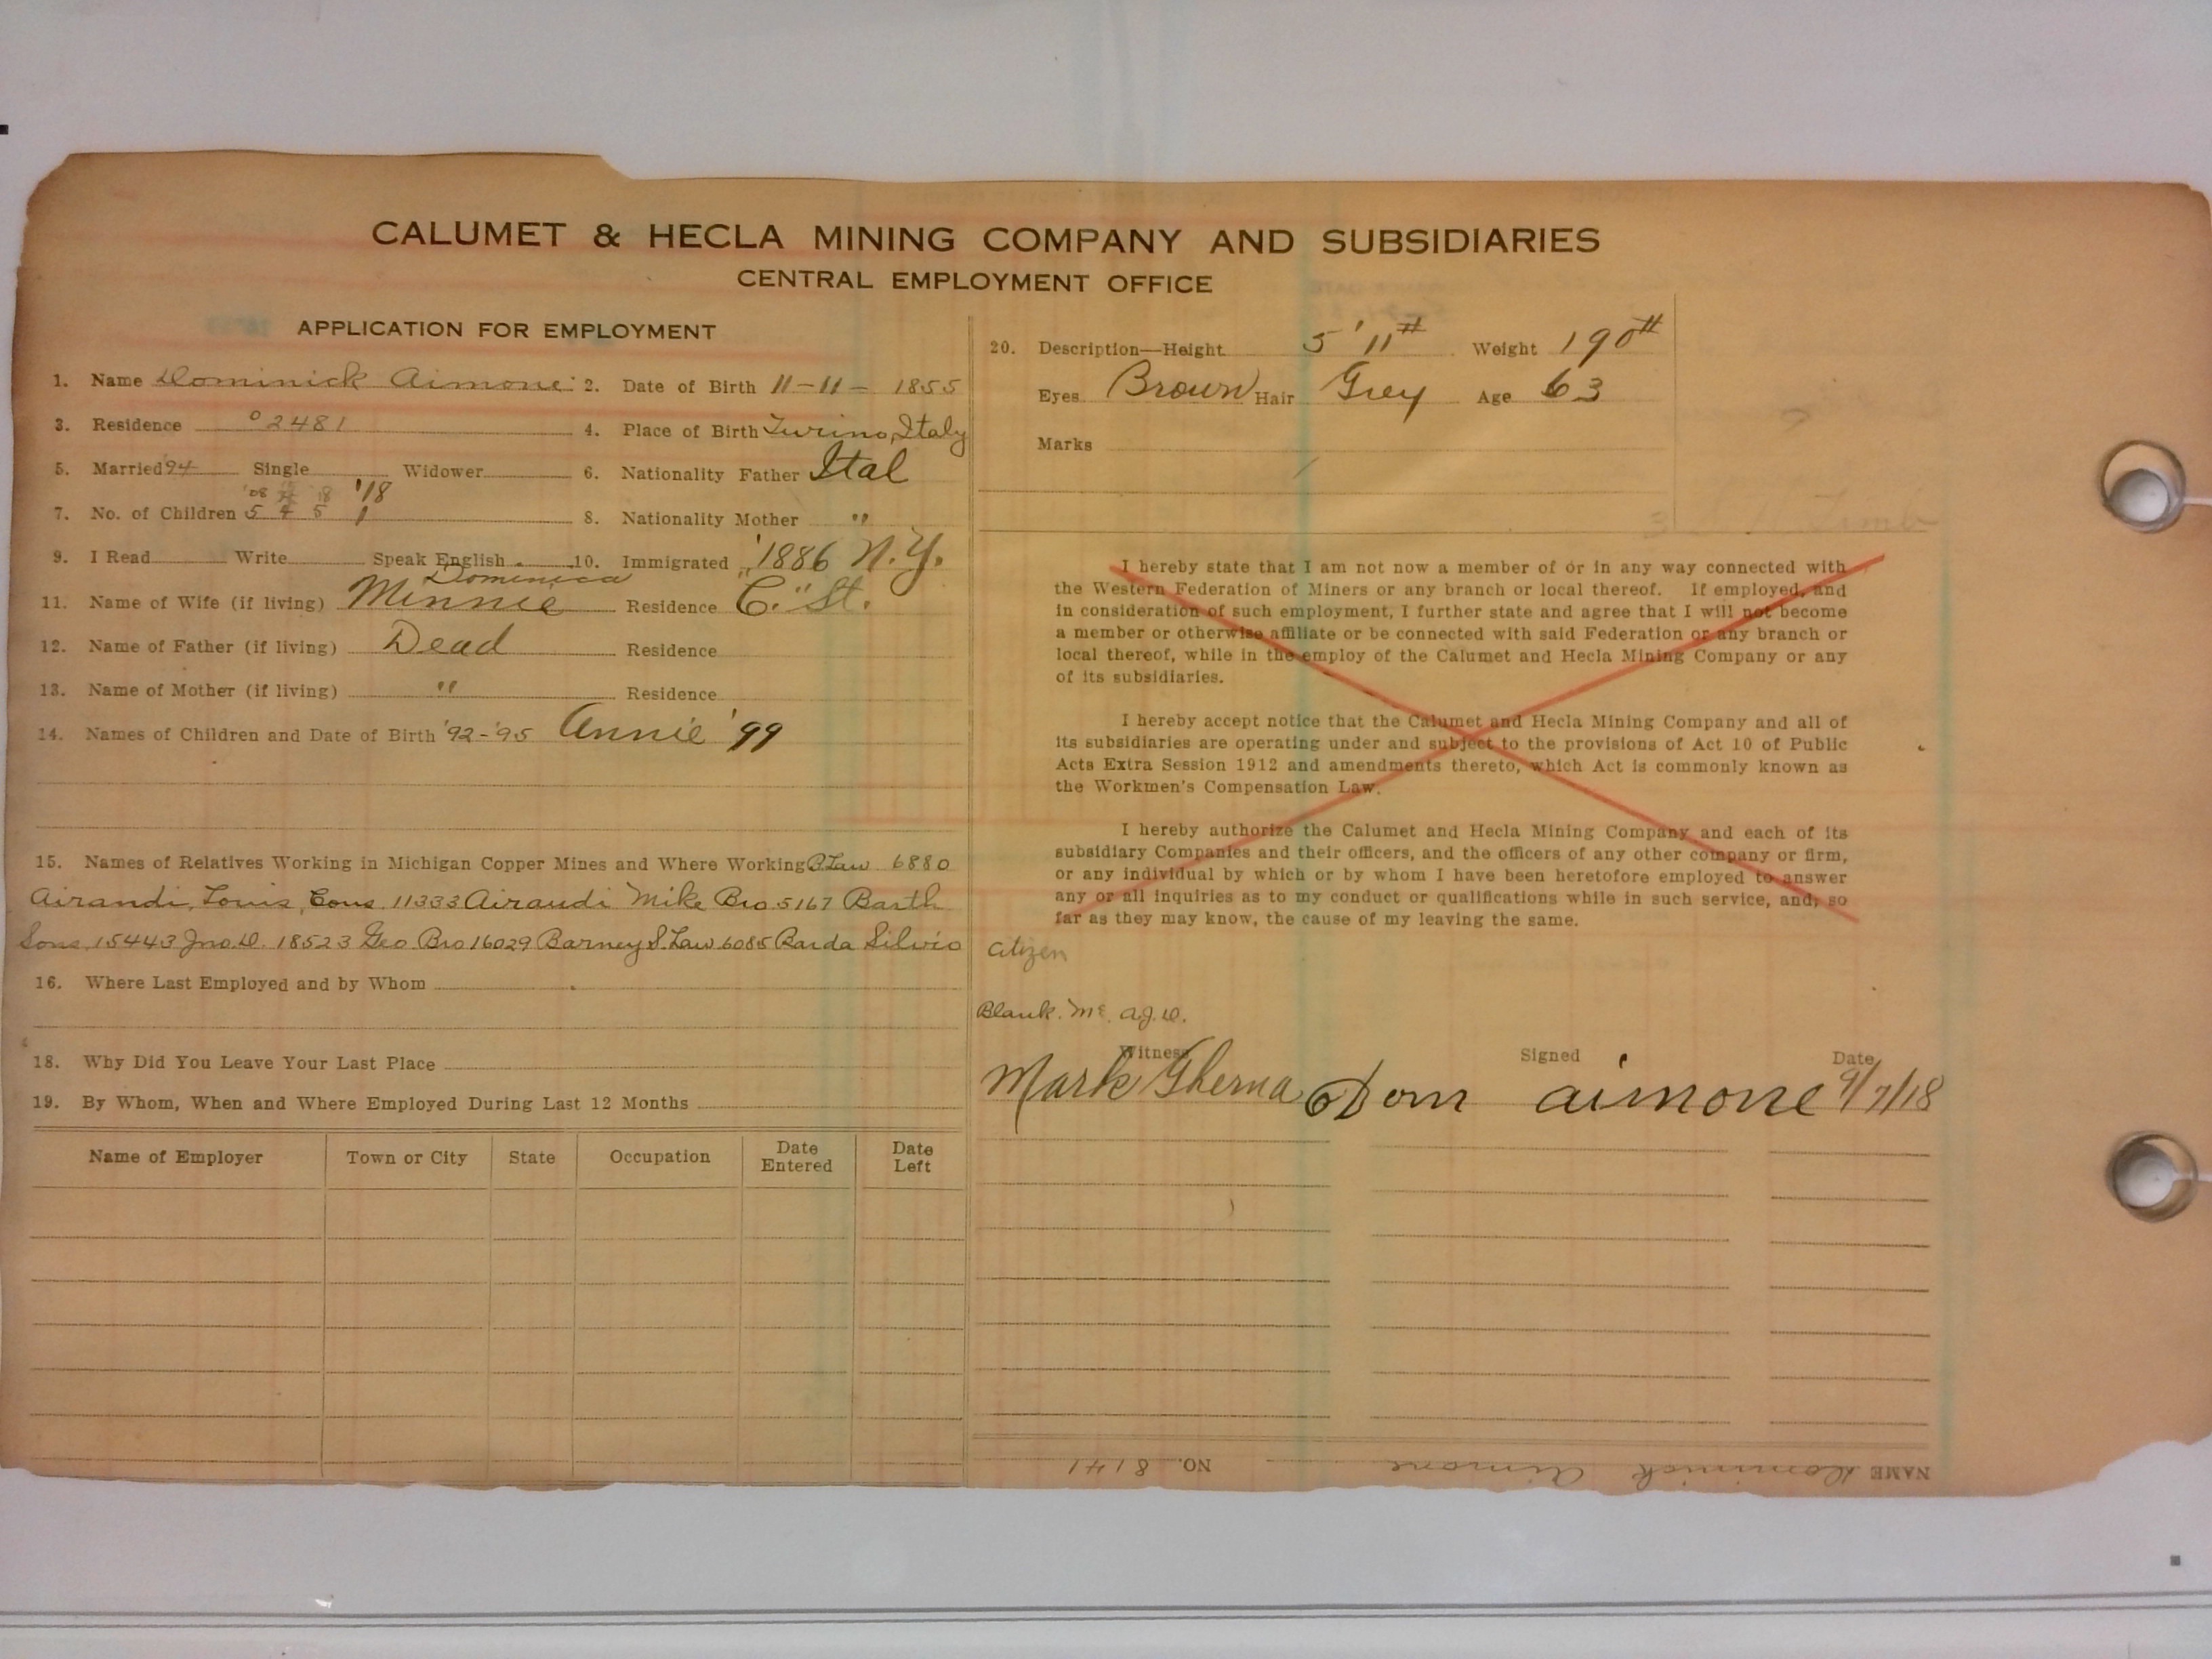 CALUMET & HECLA MINING COMPANY AND SUBSIDIARIES
CENTRAL EMPLOYMENT OFFICE
APPLICATION FOR EMPLOYMENT
1. Name Dominick Aimone 2. Date of Birth 11-11-1855
3. Residence 02481 4. Place of Birth Turino, Italy
5. Married '94 Single Widower 6. Nationality Father Ital
'08 '18
7. No. of Children 5 4 5 1 8. Nationality Mother "
9. I Read Write Speak English 10. Immigrated '1886 N.Y.
Dominica
11. Name of Wife (if living) Minnie Residence "C." St.
12. Name of Father (if living) Dead Residence
13. Name of Mother (if living) " Residence
14. Names of Children and Date of Birth '92-'95 Annie '99
15. Names of Relatives Working in Michigan Copper Mines and Where Working B Law 6880
Airandi, Louis, Cous. 11333 Airaudi Mike Bro 5167 Barth
Sons, 15443 Jno. D. 18523 Geo Bro 16029 Barney S. Law 6085 Barda Silvio
16. Where Last Employed and by Whom
18. Why Did You Leave Your Last Place
19. By Whom, When and Where Employed During Last 12 Months
Name of Employer Town or City State Occupation Date Entered Date Left
20. Description—Height 5' 11" Weight 190#
Eyes Brown Hair Grey Age 63
Marks
I hereby state that I am not now a member of or in any way connected with
the Western Federation of Miners or any branch or local thereof. If employed, and
in consideration of such employment, I further state and agree that I will not become
a member or otherwise affiliate or be connected with said Federation or any branch or
local thereof, while in the employ of the Calumet and Hecla Mining Company or any
of its subsidiaries.
I hereby accept notice that the Calumet and Hecla Mining Company and all of
its subsidiaries are operating under and subject to the provisions of Act 10 of Public
Acts Extra Session 1912 and amendments thereto, which Act is commonly known as
the Workmen's Compensation Law.
I hereby authorize the Calumet and Hecla Mining Company and each of its
subsidiary Companies and their officers, and the officers of any other company or firm,
or any individual by which or by whom I have been heretofore employed to answer
any or all inquiries as to my conduct or qualifications while in such service, and, so
far as they may know, the cause of my leaving the same.
Citizen
Blank. Mc. A.J.D.
Witness Signed Date
Mark Gherna Dom aimone 9/7/18
NAME Dominick Aimone NO. 8141